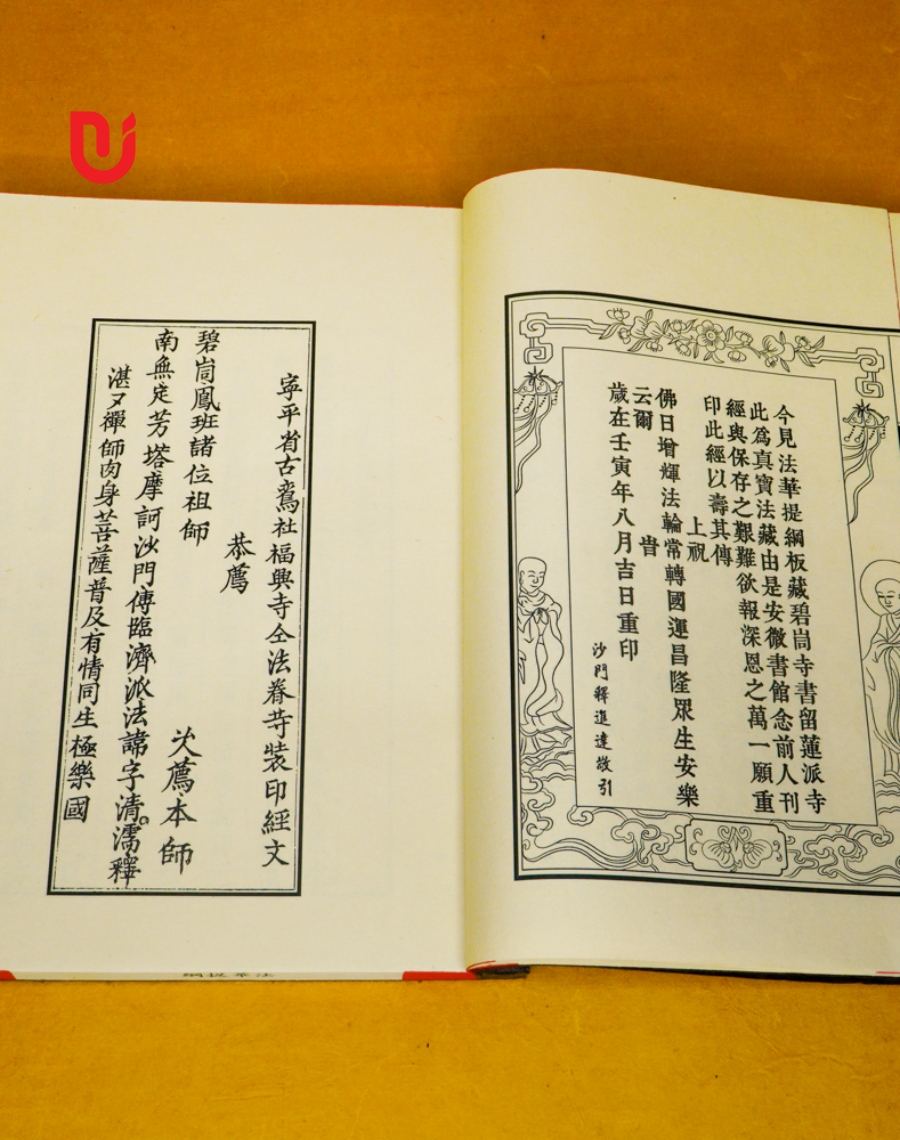 今見法華提綱板藏碧峝寺書留蓮派寺
此為真寶法藏由是安微書館念前人刊
經與保存之艱難欲報深恩之萬一願重
印此經以壽其傳
上祝
佛日增輝法輪常轉國運昌隆眾生安樂
云爾 旹
歲在壬寅年八月吉日重印
沙門釋進達敬引
寧平省古鴦社福興寺仝法眷等裝印經文
恭薦
碧峝鳳班諸位祖師 次薦本師
南無定芳塔摩訶沙門傳臨濟派法諱字清濡釋
湛〻禪師肉身菩薩普及有情同生極樂國